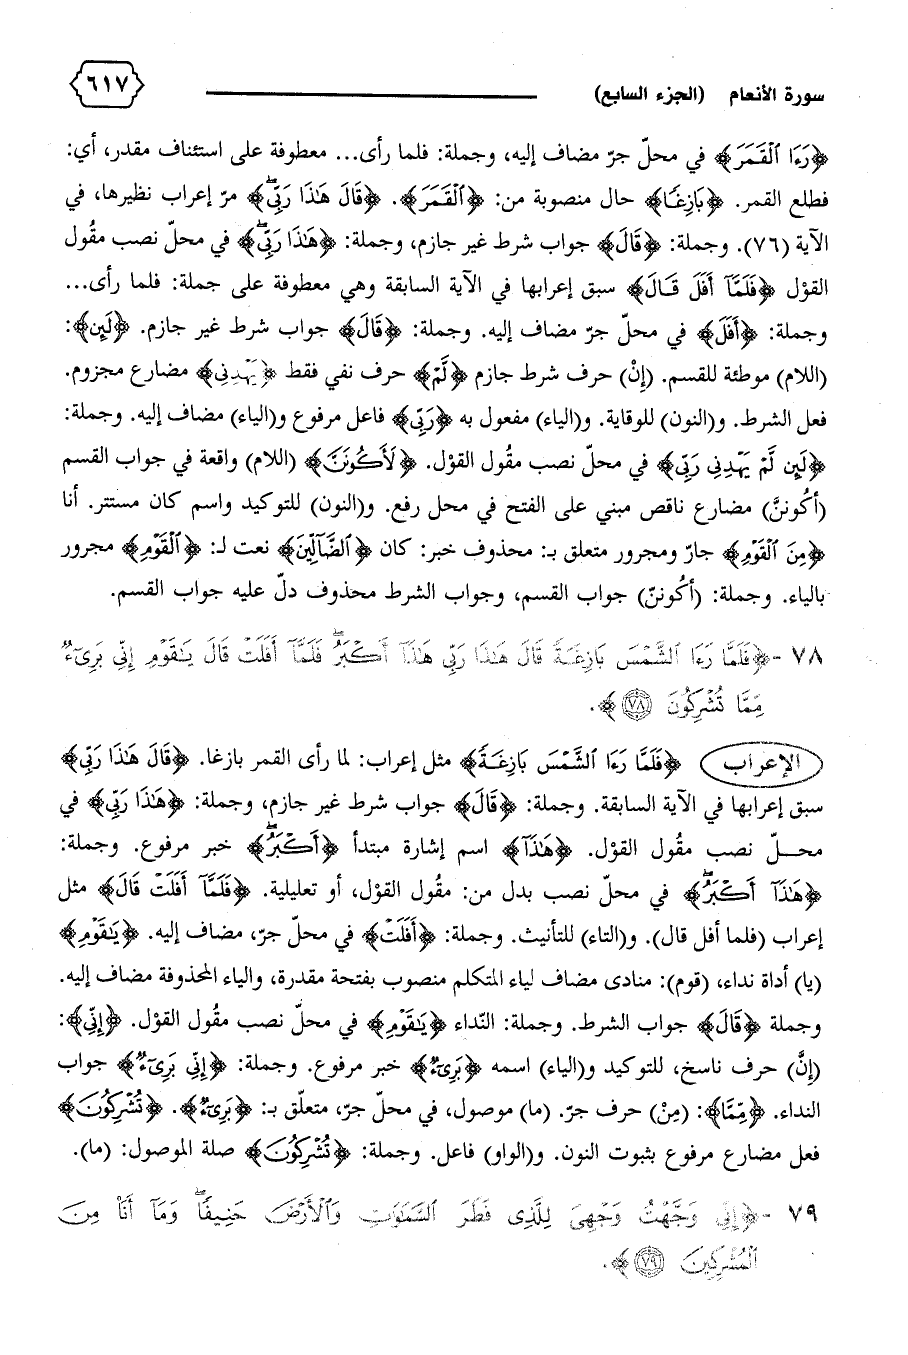 سورة الأنعام (الجزء السابع) ٦١٧
﴿رَءَا ٱلْقَمَرَ﴾ في محلّ جرّ مضاف إليه، وجملة: فلما رأى... معطوفة على استئناف مقدر، أي:
فطلع القمر. ﴿بَازِغًا﴾ حال منصوبة من: ﴿ٱلْقَمَرَ﴾. ﴿قَالَ هَٰذَا رَبِّيۖ﴾ مرّ إعراب نظيرها، في
الآية (٧٦). وجملة: ﴿قَالَ﴾ جواب شرط غير جازم، وجملة: ﴿هَٰذَا رَبِّيۖ﴾ في محلّ نصب مقُول
القوْل ﴿فَلَمَّآ أَفَلَ قَالَ﴾ سبق إعرابها في الآية السابقة وهي معطوفة على جملة: فلما رأى...
وجملة: ﴿أَفَلَ﴾ في محلّ جرّ مضاف إليه. وجملة: ﴿قَالَ﴾ جواب شرط غير جازم. ﴿لَئِن﴾:
(اللام) موطئة للقسم. (إنْ) حرف شرط جازم ﴿لَّمْ﴾ حرف نفي فقط ﴿يَهْدِنِي﴾ مضارع مجزوم.
فعل الشرط. و(النون) للوقاية. و(الياء) مفعول به ﴿رَبِّي﴾ فاعل مرفوع و(الياء) مضاف إليه. وجملة:
﴿لَئِن لَّمْ يَهْدِنِي رَبِّي﴾ في محلّ نصب مقُول القوْل. ﴿لَأَكُونَنَّ﴾ (اللام) واقعة في جواب القسم
(أكُوننَّ) مضارع ناقص مبني على الفتح في محل رفع. و(النون) للتوكيد واسم كان مستتر. أنا
﴿مِنَ ٱلْقَوْمِ﴾ جارّ ومجرور متعلق بـ: محذوف خبر: كان ﴿ٱلضَّآلِّينَ﴾ نعت لـ: ﴿ٱلْقَوْمِ﴾ مجرور
بالياء. وجملة: (أكُوننّ) جواب القسم، وجواب الشرط محذوف دلّ عليه جواب القسم.
٧٨ - ﴿فَلَمَّا رَءَا ٱلشَّمْسَ بَازِغَةً قَالَ هَٰذَا رَبِّي هَٰذَآ أَكْبَرُۖ فَلَمَّآ أَفَلَتْ قَالَ يَٰقَوْمِ إِنِّي بَرِيٓءٌ
مِّمَّا تُشْرِكُونَ ۝٧٨﴾.
الإعراب ﴿فَلَمَّا رَءَا ٱلشَّمْسَ بَازِغَةً﴾ مثل إعراب: لما رأى القمر بازغا. ﴿قَالَ هَٰذَا رَبِّي﴾
سبق إعرابها في الآية السابقة. وجملة: ﴿قَالَ﴾ جواب شرط غير جازم، وجملة: ﴿هَٰذَا رَبِّي﴾ في
محــلّ نصب مقُول القوْل. ﴿هَٰذَآ﴾ اسم إشارة مبتدأ ﴿أَكْبَرُۖ﴾ خبر مرفوع. وجملة:
﴿هَٰذَآ أَكْبَرُۖ﴾ في محلّ نصب بدل من: مقُول القوْل، أو تعليلية. ﴿فَلَمَّآ أَفَلَتْ قَالَ﴾ مثل
إعراب (فلما أفل قال). و(التاء) للتأنيث. وجملة: ﴿أَفَلَتْ﴾ في محلّ جرّ، مضاف إليه. ﴿يَٰقَوْمِ﴾
(يا) أداة نداء، (قوم): منادى مضاف لياء المتكلم منصوب بفتحة مقدرة، والياء المحذوفة مضاف إليه.
وجملة ﴿قَالَ﴾ جواب الشرط. وجملة: النّداء ﴿يَٰقَوْمِ﴾ في محلّ نصب مقُول القوْل. ﴿إِنِّي﴾:
(إنَّ) حرف ناسخ، للتوكيد و(الياء) اسمه ﴿بَرِيٓءٌ﴾ خبر مرفوع. وجملة: ﴿إِنِّي بَرِيٓءٌ﴾ جواب
النداء. ﴿مِّمَّا﴾: (مِنْ) حرف جرّ. (ما) موصول، في محلّ جرّ، متعلّق بـ: ﴿بَرِيٓءٌ﴾. ﴿تُشْرِكُونَ﴾
فعل مضارع مرفوع بثبوت النون. و(الواو) فاعل. وجملة: ﴿تُشْرِكُونَ﴾ صلة الموصول: (ما).
٧٩ - ﴿إِنِّي وَجَّهْتُ وَجْهِيَ لِلَّذِي فَطَرَ ٱلسَّمَٰوَٰتِ وَٱلْأَرْضَ حَنِيفًاۖ وَمَآ أَنَا۠ مِنَ
ٱلْمُشْرِكِينَ ۝٧٩﴾.